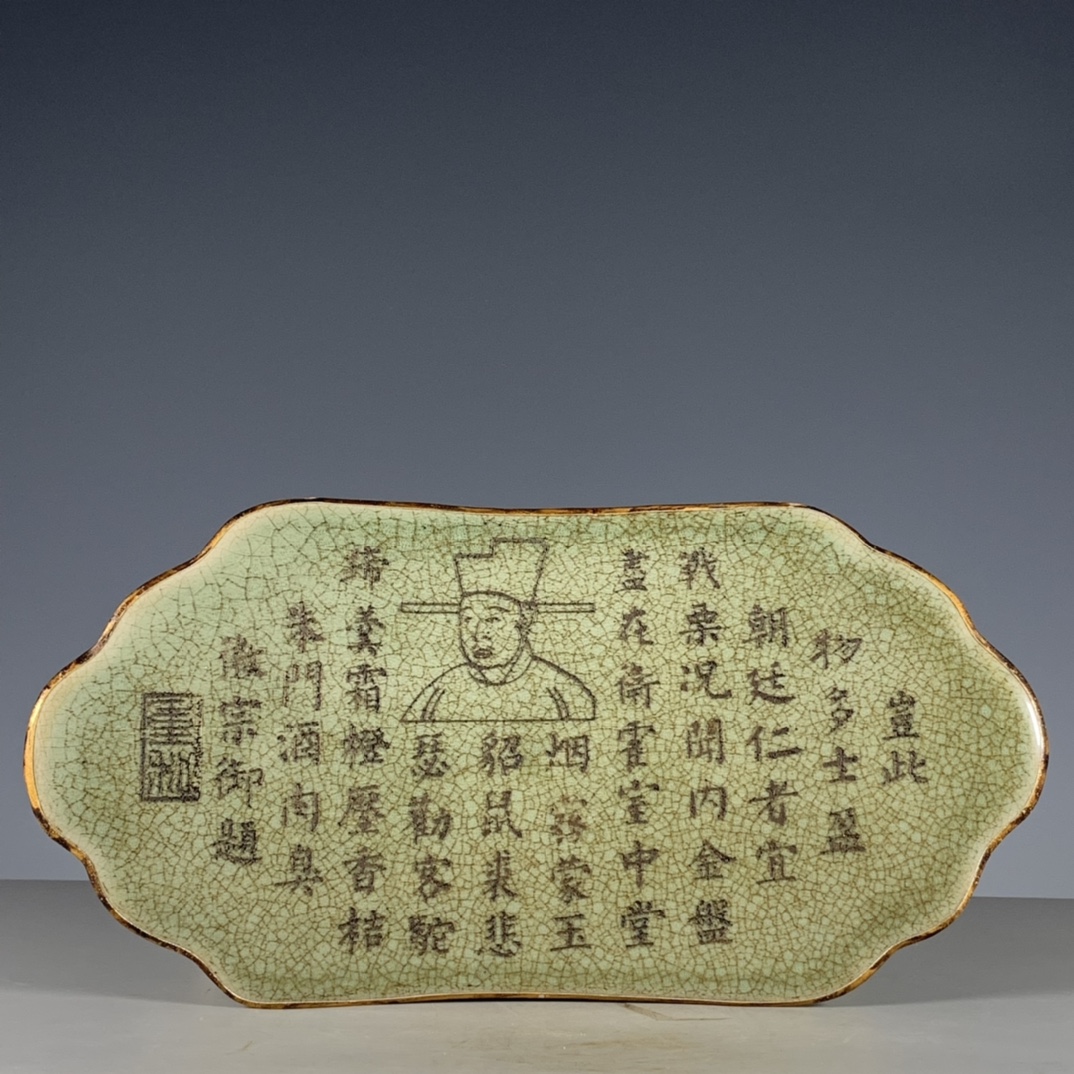 豈此
物多士盈
朝廷仁者宜
栗況聞内金盤
盡在衛霍室中堂
烟霧蒙玉
貂鼠裘悲
瑟勸客駝
蹄羹霜橙壓香桔
朱門酒肉臭
徽宗御題